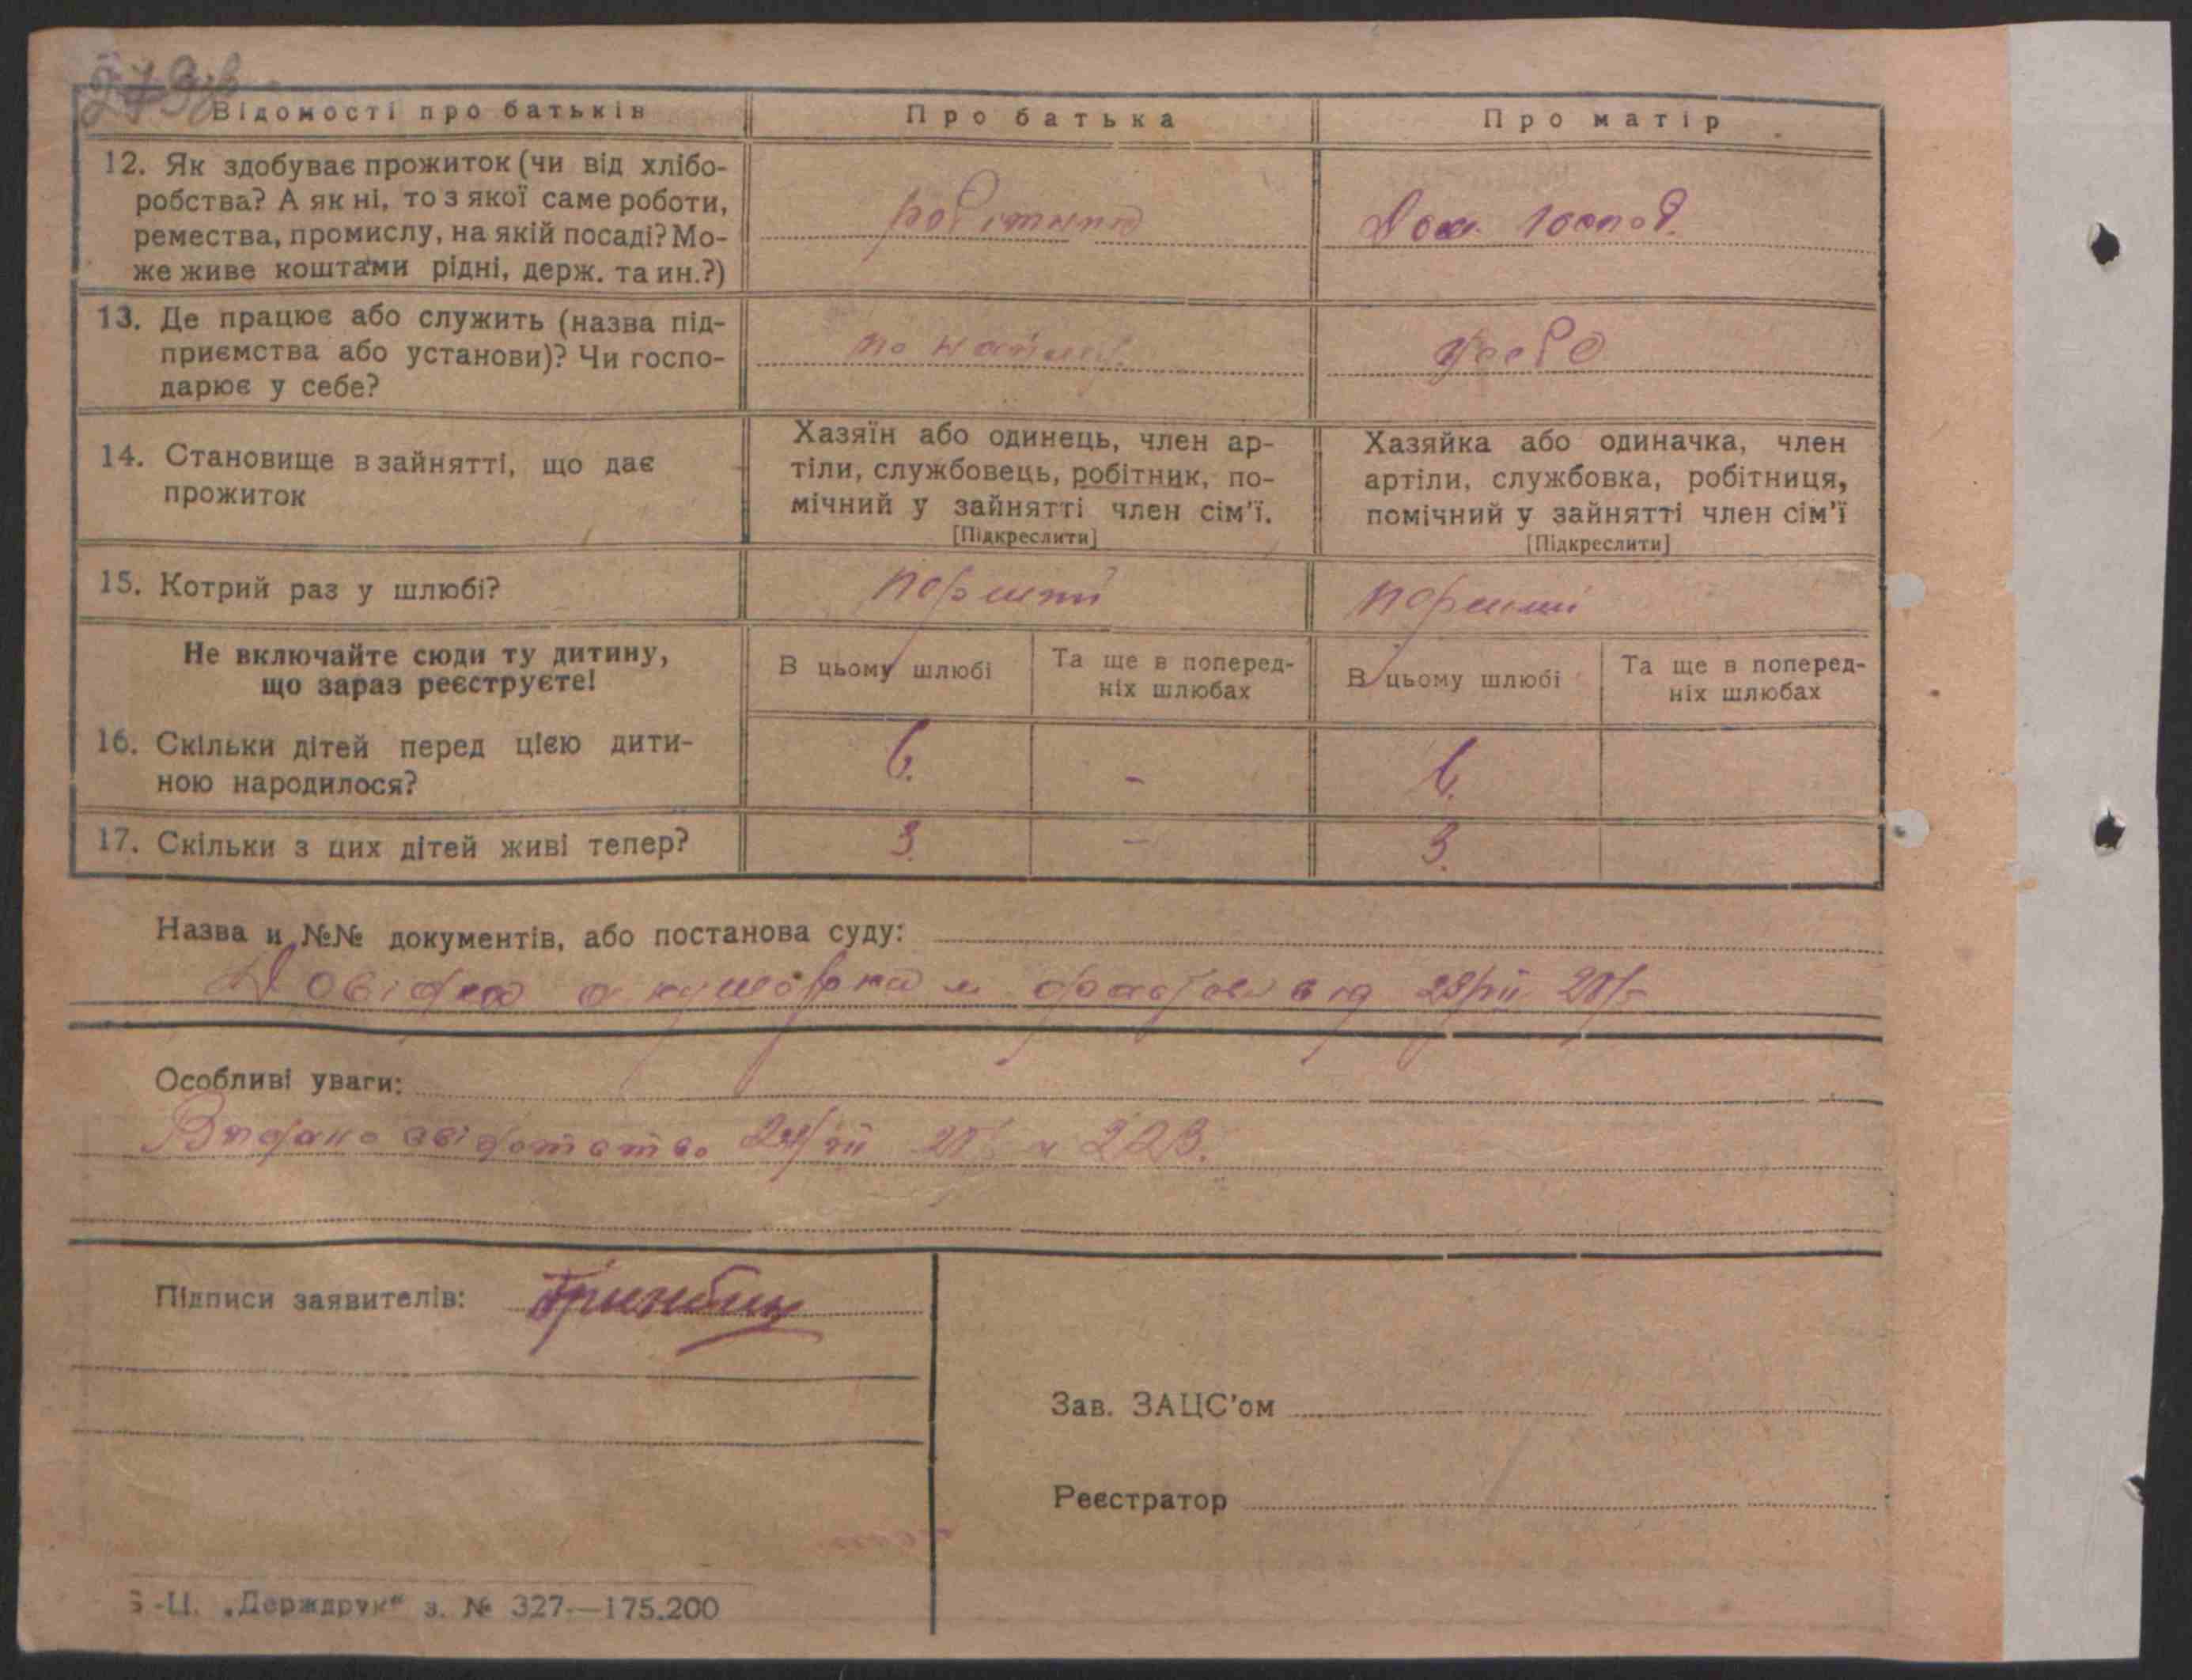 Відомості про батьків
Про батька
Про матір
12. Як здобуває прожиток (чи від хлібо-
робства? А як ні, то з якої саме роботи,
ремества, промислу, на якій посаді? Мо-
же живе коштами рідні, держ. та ин.?)
робітник
Дом. господ.
13. Де працює або служить (назва під-
приємства або установи)? Чи госпо-
дарює у себе?
по найму
14. Становище в зайнятті, що дає
прожиток
Хазяїн або одинець, член ар-
тіли, службовець, робітник, по-
мічний у зайнятті член сім'ї.
[Підкреслити]
Хазяйка або одиначка, член
артіли, службовка, робітниця,
помічний у зайнятті член сім'ї
[Підкреслити]
15. Котрий раз у шлюбі?
перший
перший
Не включайте сюди ту дитину,
що зараз реєструєте!
В цьому шлюбі
Та ще в поперед-
ніх шлюбах
В цьому шлюбі
Та ще в поперед-
ніх шлюбах
16. Скільки дітей перед цією дити-
ною народилося?
6.
-
6.
17. Скільки з цих дітей живі тепер?
3.
-
3.
Назва и №№ документів, або постанова суду:
Довідка акушерка від
Особливі уваги:
Видано свідотство 223.
Підписи заявителів:
Зав. ЗАЦС'ом
Реєстратор
-Ц. „Держдрук" з. № 327.—175.200